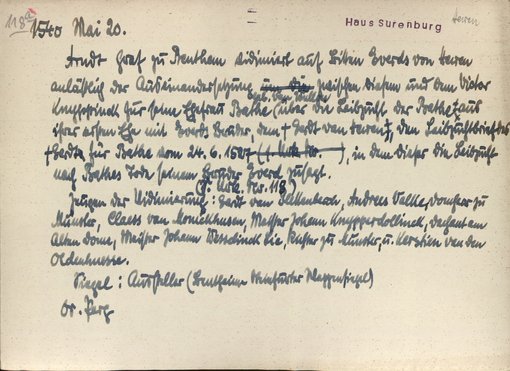 118a 1540 Mai 20.
Haus Surenburg
Heven
Arndt Graf zu Bentheim vidimiert auf Bitten Everds von Heven
anläßlich der Auseinandersetzung zwischen diesem und dem Victor
Knyppinck für seine Ehefrau Bathe geb. van Valke über die Leibzucht der Bathe aus
ihrer ersten Ehe mit Everds Bruder, dem † Gerdt van Heven, den Leibzuchtbrief des
† Gerdt für Bathe vom 24. 6. 1507 ( ), in dem dieser die Leibzucht
nach Bathes Tode seinem Bruder Everd zusagt.
(s. Urk. Nr. 118)
Zeugen der Vidimierung: Gerdt van Andreas Valke, Domherr zu
Münster, Claess van Monickhusen, Meister Johann Knypperdollinck, Dechant am
Alten Dome, Meister Johann Küster zu Münster, u. Kerstien van den
Oldenhuesse.
Siegel: Aussteller (Bentheim Steinfurter Wappensiegel)
Or. Perg.